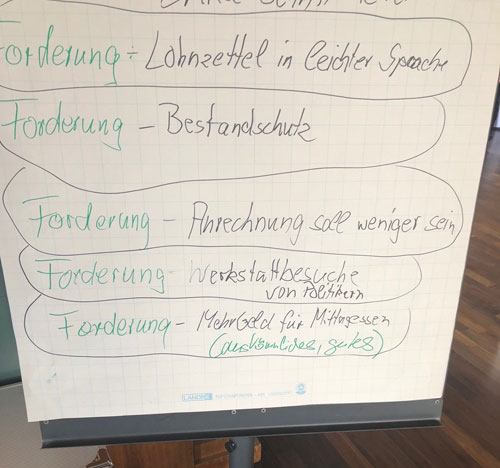 Forderung - Lohnzettel in leichter Sprache
Forderung - Bestandschutz
Forderung - Anrechnung soll weniger sein
Forderung - Werkstattbesuche
von Politikern
Forderung - Mehr Geld für Mittagessen
gutes)
LANDRÉ